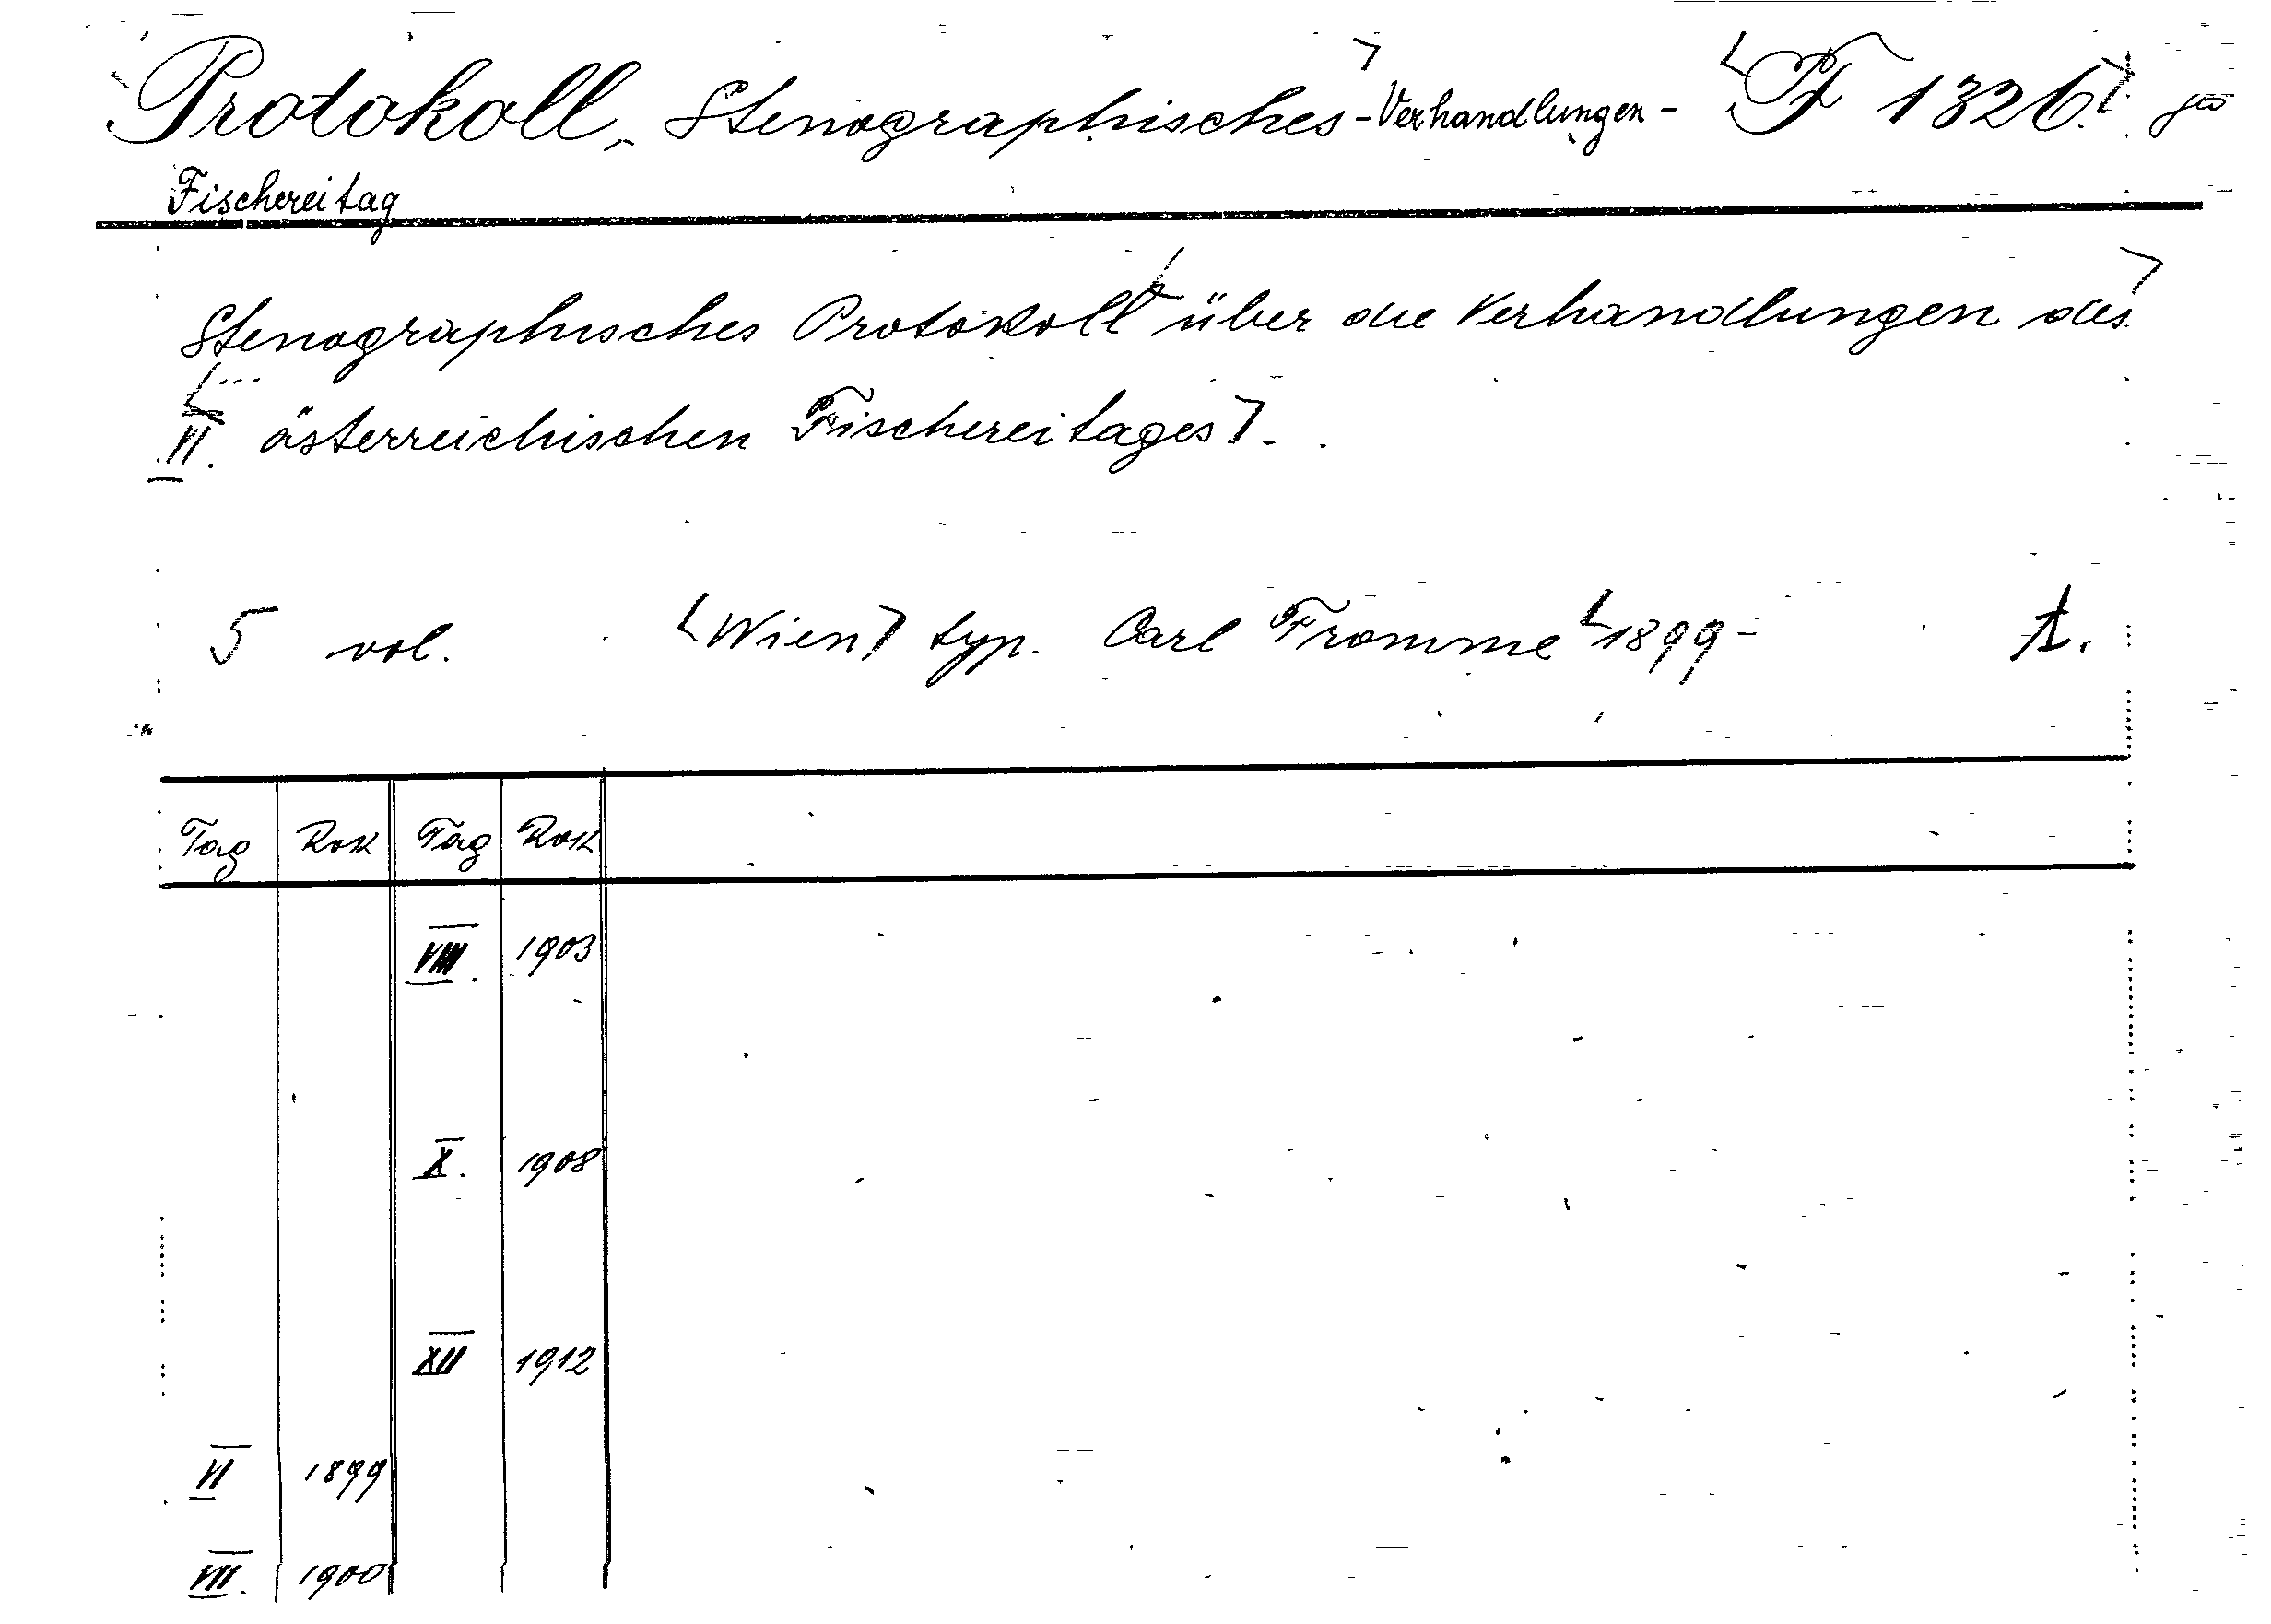 Protokoll, Stenographisches - Verhandlungen - Pf 1326.
Fischereitag
Stenographisches Protokoll über die Verhandlungen des
VI. österreichischen Fischereitages.
5 vol. Wien typ. Carl Fromme 1899-
Tag Rok Tag Rok
VIII. 1903
X. 1908
XII 1912
VI 1899
VII. 1900